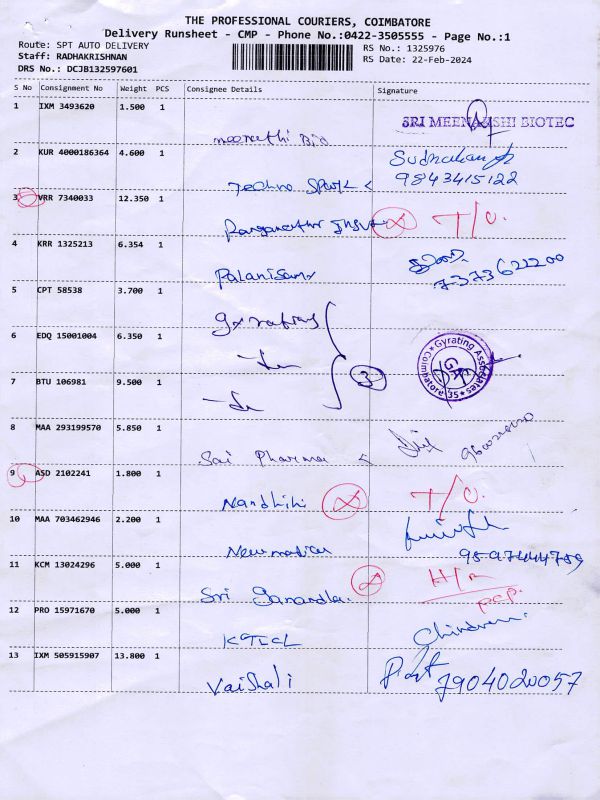 THE PROFESSIONAL COURIERS, COIMBATORE
Delivery Runsheet - CMP - Phone No.:0422-3505555 - Page No.:1
Route: SPT AUTO DELIVERY
RS No.: 1325976
Staff: RADHAKRISHNAN
RS Date: 22-Feb-2024
DRS No.: DCJB132597601
S No Consignment No Weight PCS Consignee Details Signature
1 IXM 3493620 1.500 1
SRI MEENAKSHI BIOTEC
2 KUR 4000186364 4.600 1
Sudhakar
9843415122
Techno Spark
3 VRR 7340033 12.350 1
T/C.
4 KRR 1325213 6.354 1
7373622200
Palanisamy
5 CPT 58538 3.700 1
6 EDQ 15001004 6.350 1
3
Gyrating Associates
Coimbatore 35
7 BTU 106981 9.500 1
8 MAA 293199570 5.850 1
Sai Pharma
9 ASD 2102241 1.800 1
T/C.
Nandhini
10 MAA 703462946 2.200 1
9597444759
11 KCM 13024296 5.000 1
Sri
12 PRO 15971670 5.000 1
13 IXM 505915907 13.800 1
Vaishali
7904020057